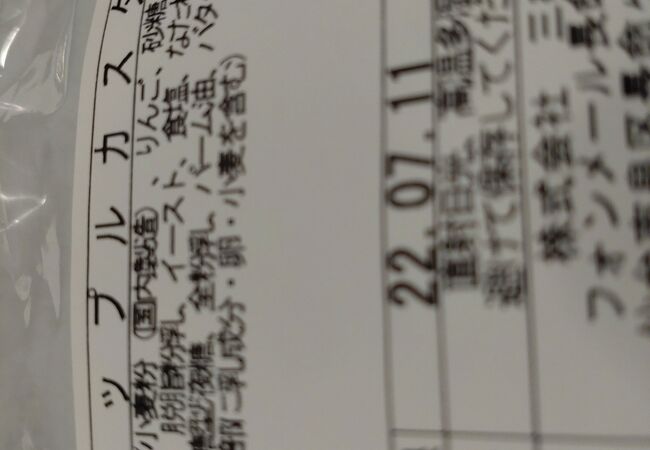 ップルカス
小麦粉(国内製造)、りんご、砂糖
脱脂粉乳、イースト、食塩、なたね
糖型液糖、全粉乳、パーム油、バタ
部に乳成分・卵・小麦を含む)
22.07.11
直射日光、高温多湿
避けて保存してくだ
株式会社 三
フォンメール長